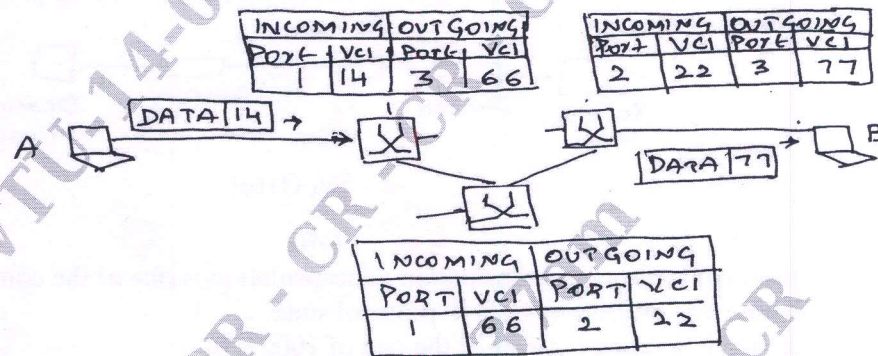 INCOMING OUTGOING
Port VCI Port VCI
1 14 3 66
INCOMING OUTGOING
Port VCI Port VCI
2 22 3 77
DATA 14
A
B
DATA 77
INCOMING OUTGOING
PORT VCI PORT VCI
1 66 2 22